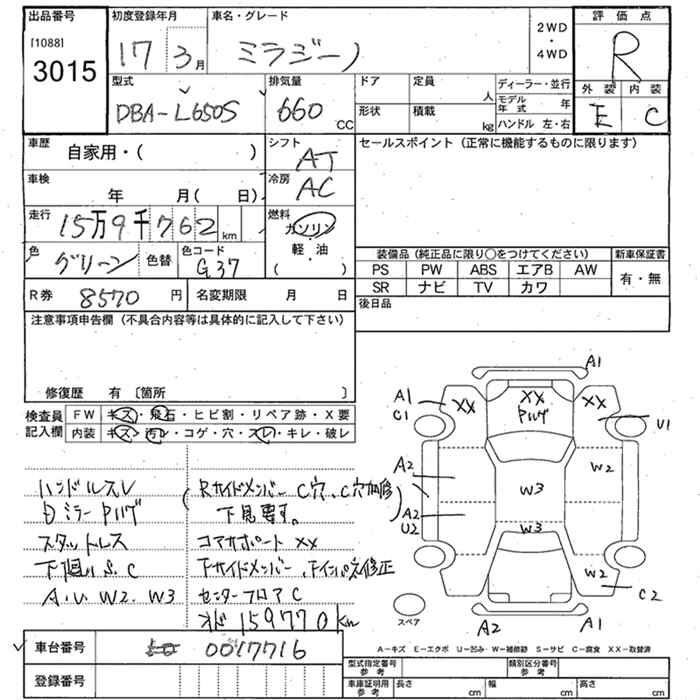 出品番号 初度登録年月 車名・グレード 2WD・4WD 評価点
[1088] 3015 17 3月 ミラジーノ R
型式 排気量 ドア 定員 人 ディーラー・並行 外装 内装
DBA-L650S 660CC 形状 積載 kg モデル年式 年 E C
ハンドル 左・右
車歴 自家用・( ) シフト AT セールスポイント(正常に機能するものに限ります)
車検 年 月( 日) 冷房 AC
走行 15万9千762km 燃料 ガソリン・軽・油
( )
色 グリーン 色替 色コード G37
装備品(純正品に限り○をつけてください) 新車保証書
PS PW ABS エアB AW 有・無
SR ナビ TV カワ
R券 8570円 名変期限 月 日 後日品
注意事項申告欄(不具合内容等は具体的に記入して下さい)
修復歴 有 〔箇所 〕
検査員記入欄 FW キズ・飛石・ヒビ割・リペア跡・X要
内装 キズ・汚レ・コゲ・穴・スレ・キレ・破レ
ハンドルスレ
スタットレス
A.U W2.W3
Rサイドメンバー C穴、C穴補修
下見要す。
コアサポート XX
下サイドメンバー、
センターフロアC
159770km
A1
A1 XX XX XX
C1 U1
A2 W2
W3
A2
U2
W3
W2
C2
スペア
A2 A1
A-キズ E-エクボ U-凹み W-補修跡 S-サビ C-腐食 XX-取替済
車台番号 0017716
登録番号
型式指定番号 参考 類別区分番号 参考
車庫証明用 参考 長さ cm 幅 cm 高さ cm